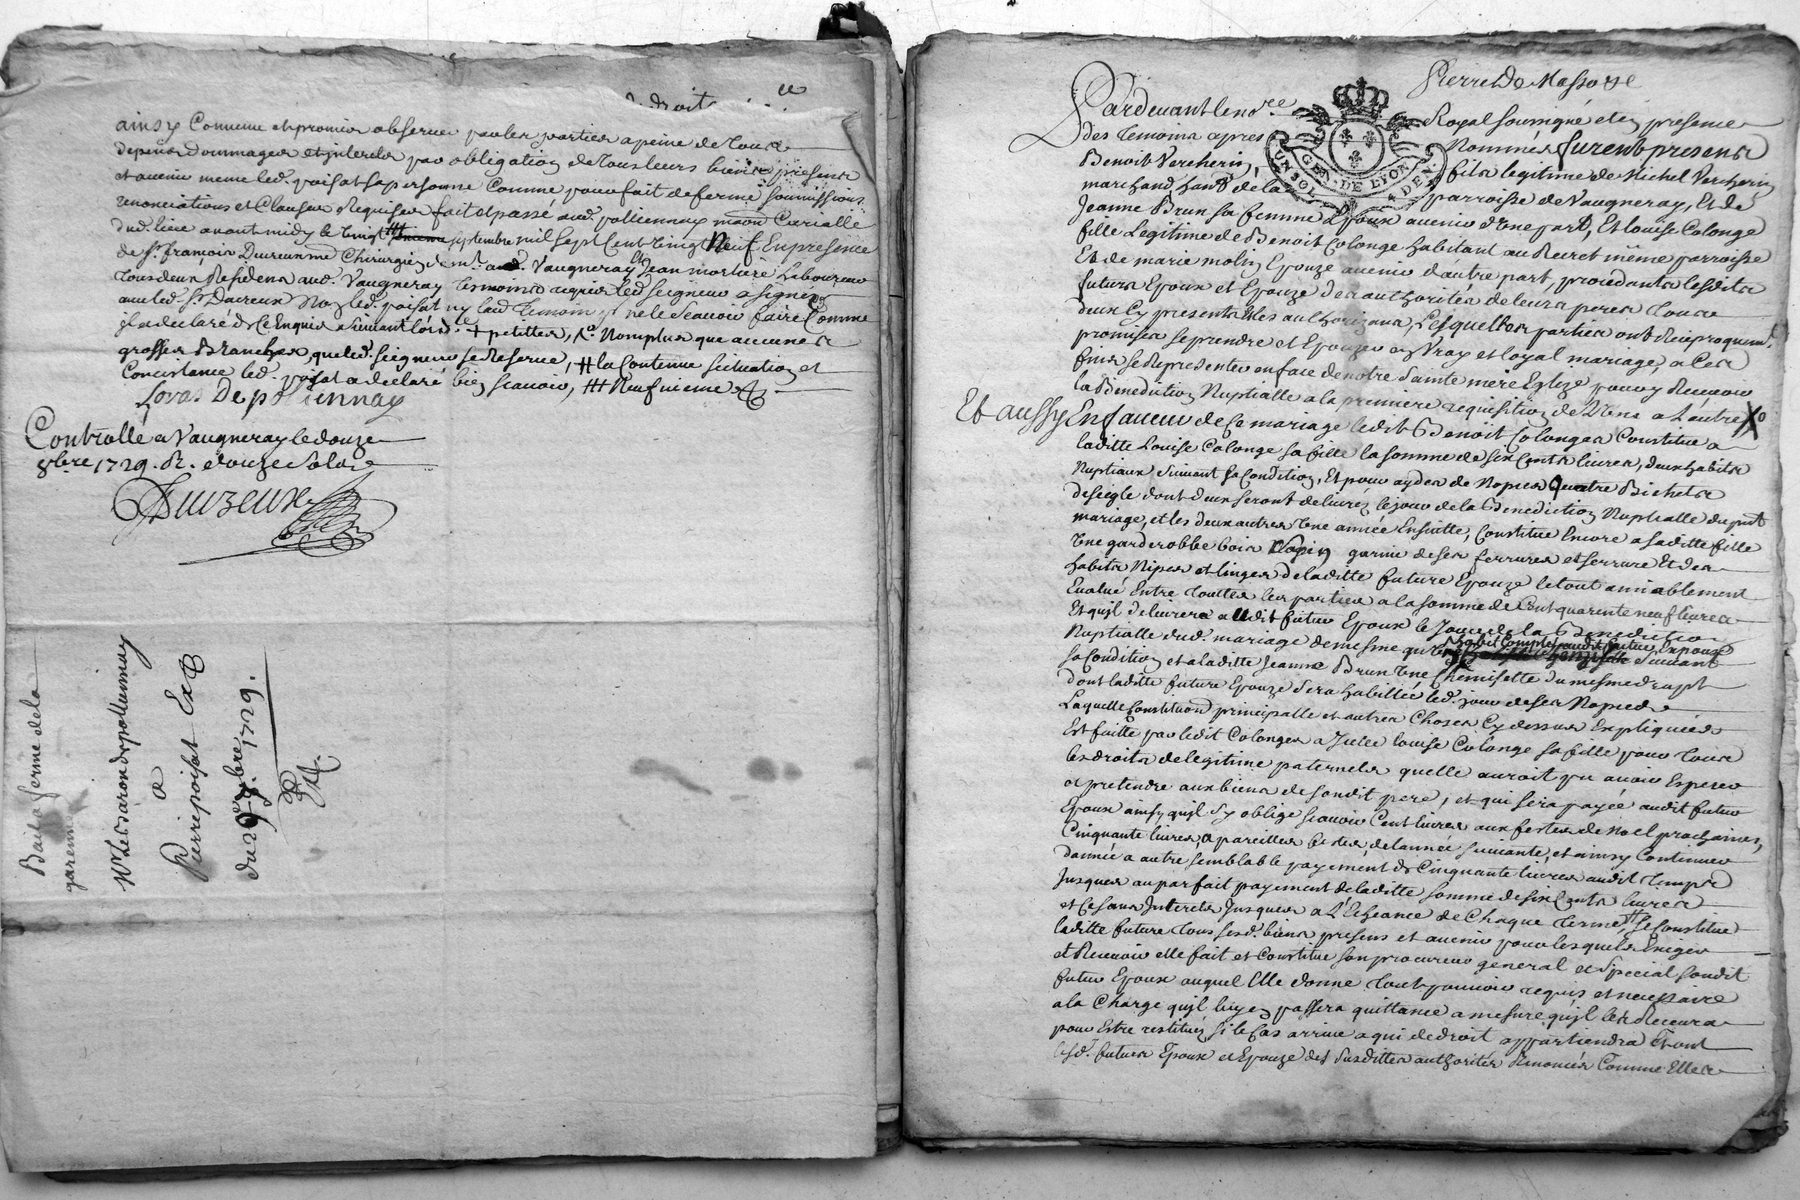 droits
ainsy Convenu et promis observer par les parties a peine de tous
depens dommages et interets par obligation de tous leurs biens presens
et avenir meme led. poisat sa personne Comme pour fait de ferme soumissions
renonciations et Clauses Requises fait et passé aud. pollionnay maon Curialle
dud. lieu avant midy le vingt ### septembre mil sept Cent vingt Neuf En presence
de Sr. francois Duzeux me Chirurgien aud. Vaugneray et Jean mortiere Laboureur
tous deux Residens aud. Vaugneray temoins requis led. seigneur a signé
avec led. Sr. Duzeux Non led. poisat ny laud. temoin pr ne le scavoir faire Comme
jl a declaré de Ce Enquis suivant l'ord.ce + petittes, Non plus que aucunes
grosses Branches, que led. seigneur se Reserve, # la Contenue situation et
Consistance led. poisat a declaré bien scavoir, ### Neufvieme
Lovat De pollionnay
Controllé a Vaugneray le douze
8bre 1729. R. douze sols
Duzeux
Bail a ferme de la
garenne
Mr Le Baron de pollionnay
a
Pierre poisat
du 29e 7bre 1729.
Pierre De Masso
Pardevant le nore Royal soussigné et en presence
des temoins apres Nommés furent presens
Benoit Vercherin fils legitime de Michel Vercherin
marchand hant de la parroisse de Vaugneray, Et de
Jeanne Brun sa femme Epoux avenir d'Une part, Et Louise Colonge
fille Legitime de Benoit Colonge habitant au Recret même parroisse
Et de marie molin Epouze avenir d'autre part, procedants lesdits
futurs Epoux et Epouze des authorités de leurs peres tous
deux Cy presents Les authorizans, Lesquelles parties ont Reciproquemt.
promis se prendre et Epouzer en Vray et loyal mariage, a Ces
fins se Representer en face de notre Sainte mere Eglize pour y Recevoir
la Benediction Nuptialle a la premiere requisition de l'Une a l'autre
Et aussy En faveur de Ce mariage ledit Benoît Colonges Constitue a
laditte Louise Colonge sa fille la somme de six Cents livres, deux habits
Nuptiaux suivant sa Condition, Et pour ayder de Nopces Quatre Bichets
de seigle dont deux seront delivrés le jour de la Benediction Nuptialle du pnt
mariage, et les deux autres Une année Ensuitte, Constitue Encore a saditte fille
Une garderobbe bois sapin garnie de ses ferrures et serrure Et des
habits Nipes et linges de laditte future Epouze le tout amiablement
Evalué Entre touttes les parties a la somme de Cent quarente neuf livres
Et qu'jl delivrera audit futur Epoux le Jour de la Benediction
Nuptialle dud. mariage de mesme qu'un habit Complet audit futur Expoux suivant
sa Condition et a laditte Jeanne Brun Une Chemisette du mesme drapt
dont laditte future Epouze sera habillée led. jour de ses Nopces
Laquelle Constitution principalle et autres Choses Cy dessus Expliquées
Est faitte par ledit Colonges a Jcelle Louise Colonge sa fille pour tous
les droits de legitime paternels quelle auroit pu avoir Esperer
et pretendre aux biens de sondit pere, et qui sera payée audit futur
Epoux ainsy qu'jl s'y oblige scavoir Cent livres aux festes de Noel prochaines,
Cinquante livres, a pareilles festes de l'année suivante, et ainsy Continuer
d'année a autre semblable payement de Cinquante livres audit temps
Jusques au parfait payement de laditte somme de six Cents livres
et Ce sans Interets Jusques a L'Echeance de Chaque terme, Se Constitue
laditte future tous sesd. biens presens et avenir pour lesquels Exiger
et Recevoir elle fait et Constitue son procureur general et Special sondit
futur Epoux auquel Elle donne tout pouvoir requis et necessaire
a la Charge qu'jl luy en passera quittance a mesure qu'jl les Recevra
pour Estre restitués si le Cas arrive a qui de droit appartiendra Et ont
lesd. futurs Epoux et Epouze des susdittes authorités Renoncées Comme Elles
GEN. DE LYON
UN SOL
DEN